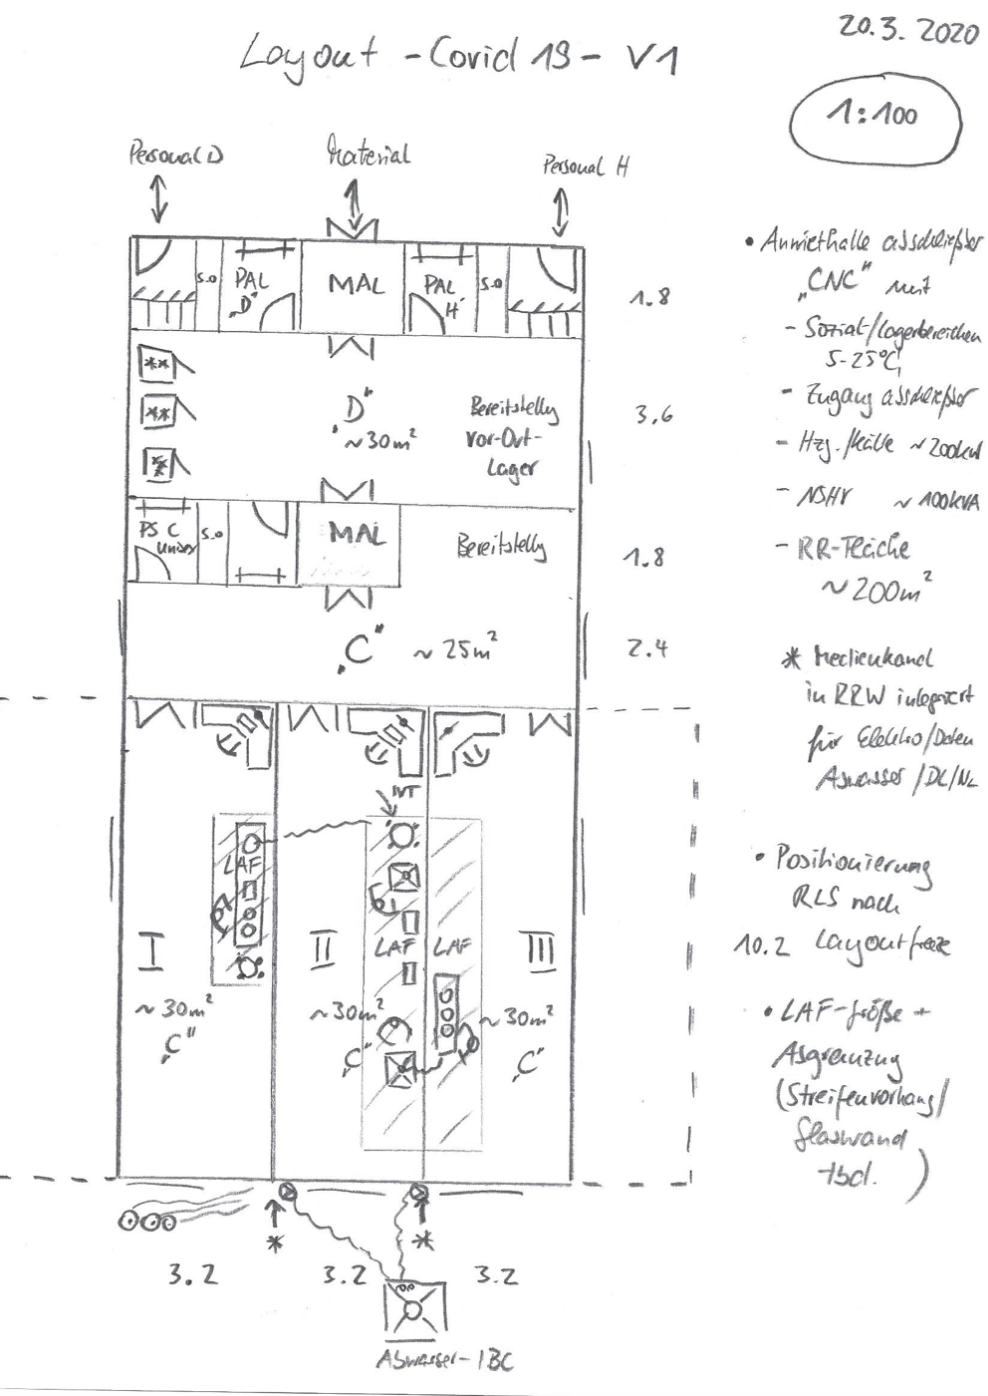 20.3.2020
Layout - Covid 19 - V1
1:100
Personal D
Material
Personal H
S.O
PAL
"D"
MAL
PAL
H"
S.O
1.8
**
**
*
"D"
~30m²
Bereitstellg
Vor-Ort-
Lager
3.6
PS C
Unisex
S.O
MAL
Bereitstellg
1.8
"C" ~ 25m²
2.4
WT
LAF
LAF
LAF
I
II
III
~30m²
"C"
~30m²
"C"
~30m²
"C"
*
*
3.2
3.2
3.2
Abwasser-IBC
• Anmiethalle abschließbar
"CNC" mit
- Sozial-/Lagerbereichen
5-25°C,
- Zugang abschließbar
- Hzg./Kälte ~200kW
- NSHV ~100kVA
- RR-Fläche
~200m²
* Medienkanal
in RRW integriert
für Elektro/Daten
Abwasser/DL/NL
• Positionierung
RLS nach
10.2 Layoutfreeze
• LAF-Größe +
Abgrenzung
(Streifenvorhang/
Glaswand
tbd.)